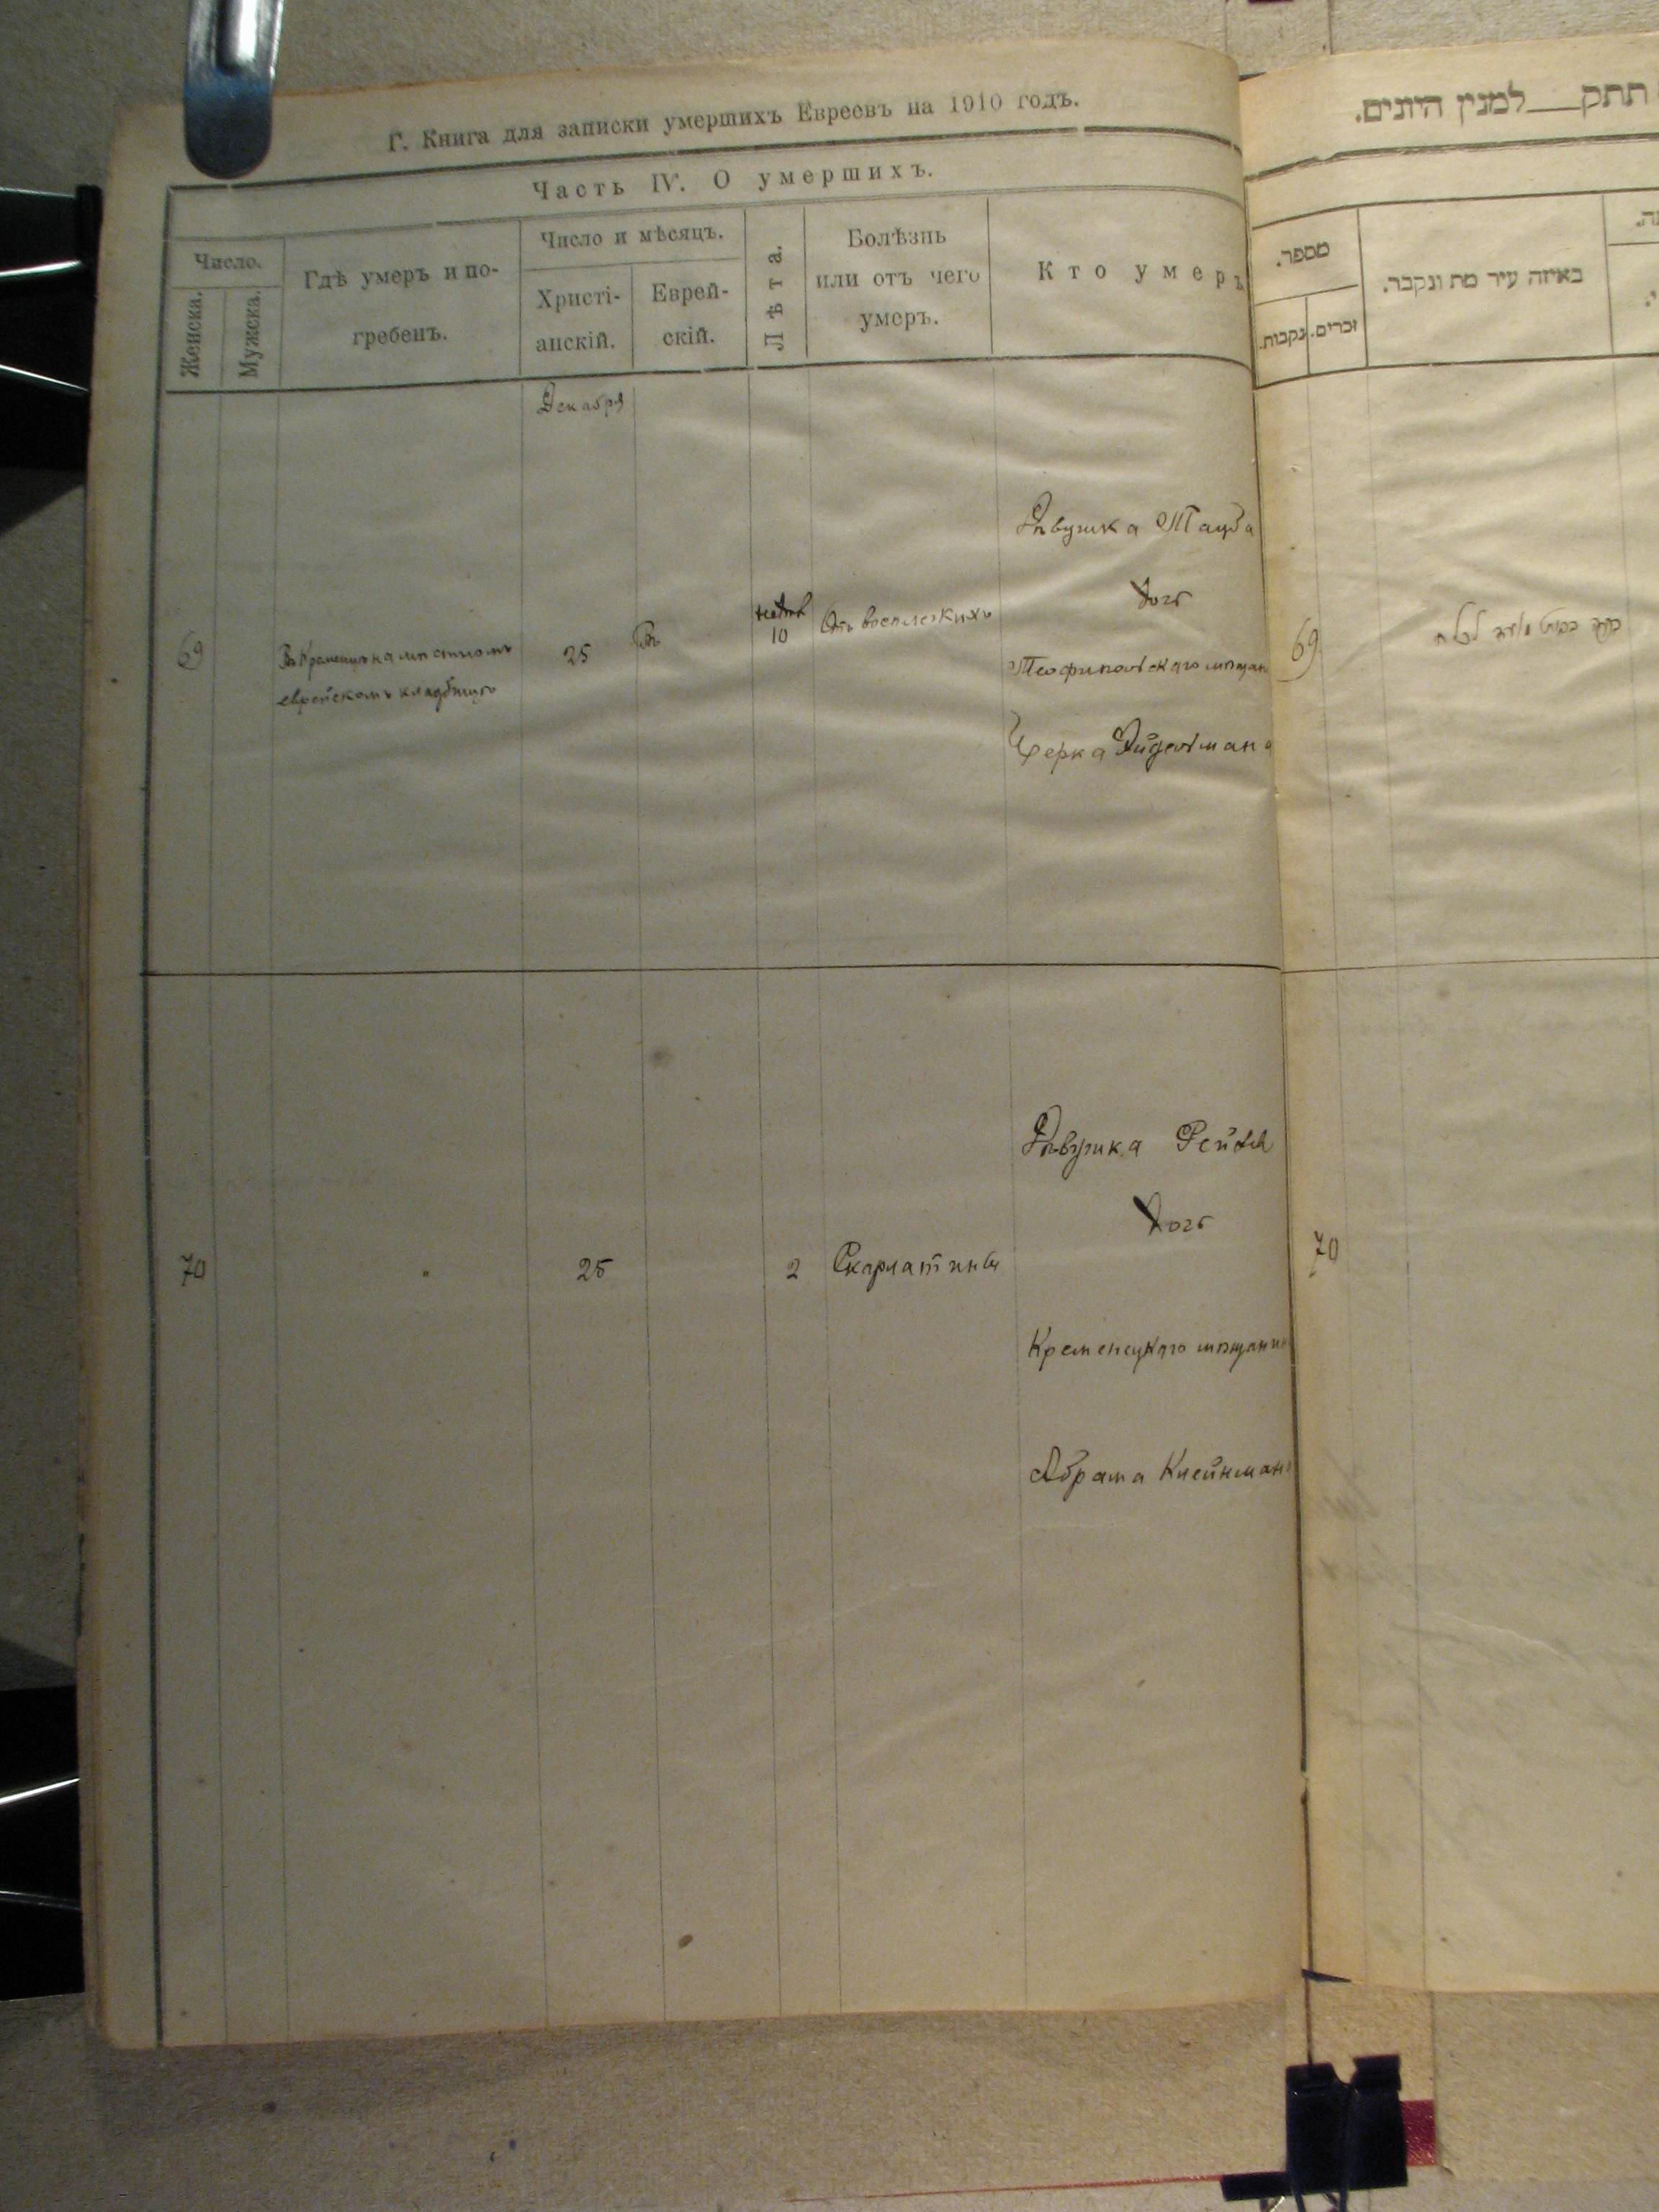 Г. Книга для записки умершихъ Евреевъ на 1910 годъ.
Часть IV. О умершихъ.
Число.
Женска.
Мужска.
Гдѣ умеръ и по-
гребенъ.
Число и мѣсяцъ.
Христі-
анскій.
Еврей-
скій.
Лѣта.
Болѣзнь
или отъ чего
умеръ.
Кто умеръ
Декабря
69
Въ Кременцѣ на мѣстномъ
еврейскомъ кладбищѣ
25
10
Отъ
Дѣвушка Тауба
дочь
Теофипольскаго мѣщан
Герка
70
25
2
Скарлатины
Дѣвушка
дочь
Кременецкаго мѣщанин
Абрама Клейнман
תתק__למנין היונים.
מספר.
נקבות.
זכרים.
באיזה עיר מת ונקבר.
69
70